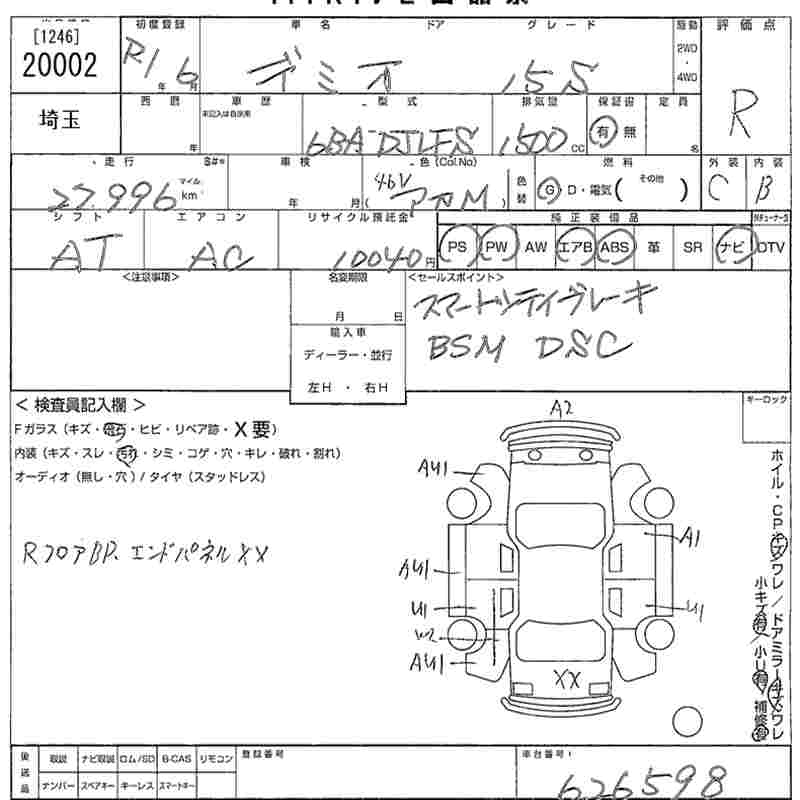 [1246]
20002
埼玉
初度登録 R1 年 6 月
車名 デミオ
ドア
グレード 15S
駆動 2WD・4WD
評価点 R
西暦 年
車歴
未記入は自家用
型式 6BA-DJLFS
排気量 1500 CC
保証書 有 無
定員 名
走行 27,996 マイル km
S#*
車検 年 月
色(Col.No) 46V アカM
色替
燃料 G D・電気( その他 )
外装 C
内装 B
シフト AT
エアコン AC
リサイクル預託金 10040円
純正装備品
PS PW AW エアB ABS 革 SR ナビ DTV
<注意事項>
名変期限
月 日
輸入車
ディーラー・並行
左H ・ 右H
<セールスポイント>
スマートシティブレーキ
BSM DSC
キーロック
< 検査員記入欄 >
Fガラス (キズ・飛石・ヒビ・リペア跡・X要)
内装 (キズ・スレ・汚れ・シミ・コゲ・穴・キレ・破れ・割れ)
オーディオ (無し・穴) / タイヤ (スタッドレス)
RフロアBP、エンドパネルXX
A2
AU1
A1
AU1
U1
U1
W2
AU1
XX
ホイル・CPキズワレ/ドアミラーキズワレ
小キズ有/小U有 補修有
後送品
取説 ナビ取説 ロム/SD B-CAS リモコン
ナンバー スペアキー キーレス スマートキー
登録番号
車台番号: 626598